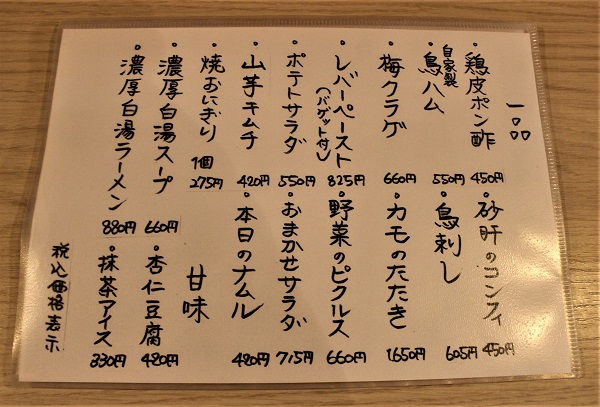 一品
・鶏皮ポン酢 450円
・自家製鳥ハム 550円
・梅クラゲ 660円
・レバーペースト(バゲット付) 825円
・ポテトサラダ 550円
・山芋キムチ 420円
・焼おにぎり 1個 275円
・濃厚白湯スープ 660円
・濃厚白湯ラーメン 880円
・砂肝のコンフィ 450円
・鳥刺し 605円
・カモのたたき 1650円
・野菜のピクルス 660円
・おまかせサラダ 715円
・本日のナムル 420円
甘味
・杏仁豆腐 420円
・抹茶アイス 330円
税込価格表示